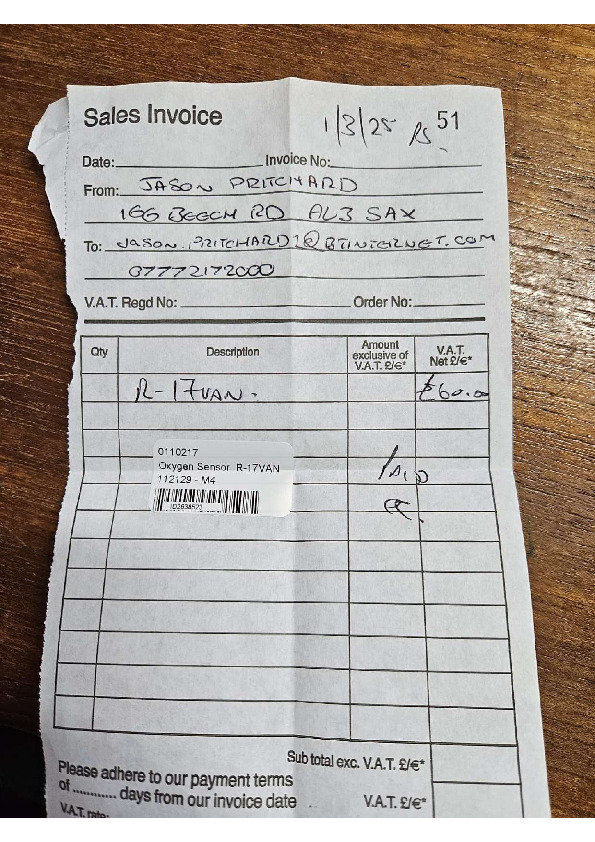 Sales Invoice
1/3/25 RS 51
Date: Invoice No:
From: JASON PRITCHARD
166 BEECH RD AL3 5AX
To: JASON.PRITCHARD1@BTINTERNET.COM
07772172000
V.A.T. Regd No: Order No:
Qty Description Amount exclusive of V.A.T. £/€* V.A.T. Net £/€*
R-17VAN. £60.00
0110217
Oxygen Sensor R-17VAN
112129 - M4
PAID
CC.
Sub total exc. V.A.T. £/€*
Please adhere to our payment terms
of ............ days from our invoice date V.A.T. £/€*
V.A.T. rate: